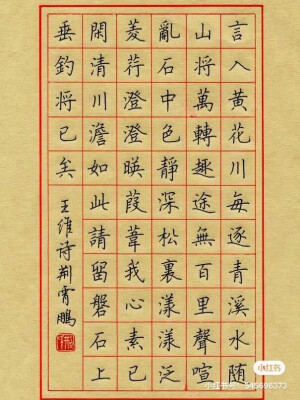 言入黄花川每逐青溪水随
山将萬轉趣途無百里聲喧
亂石中色靜深松裏漾漾泛
菱荇澄澄暎葭葦我心素已
閑清川澹如此請留磐石上
垂釣将已矣
王维诗荆霄鹏
小红书